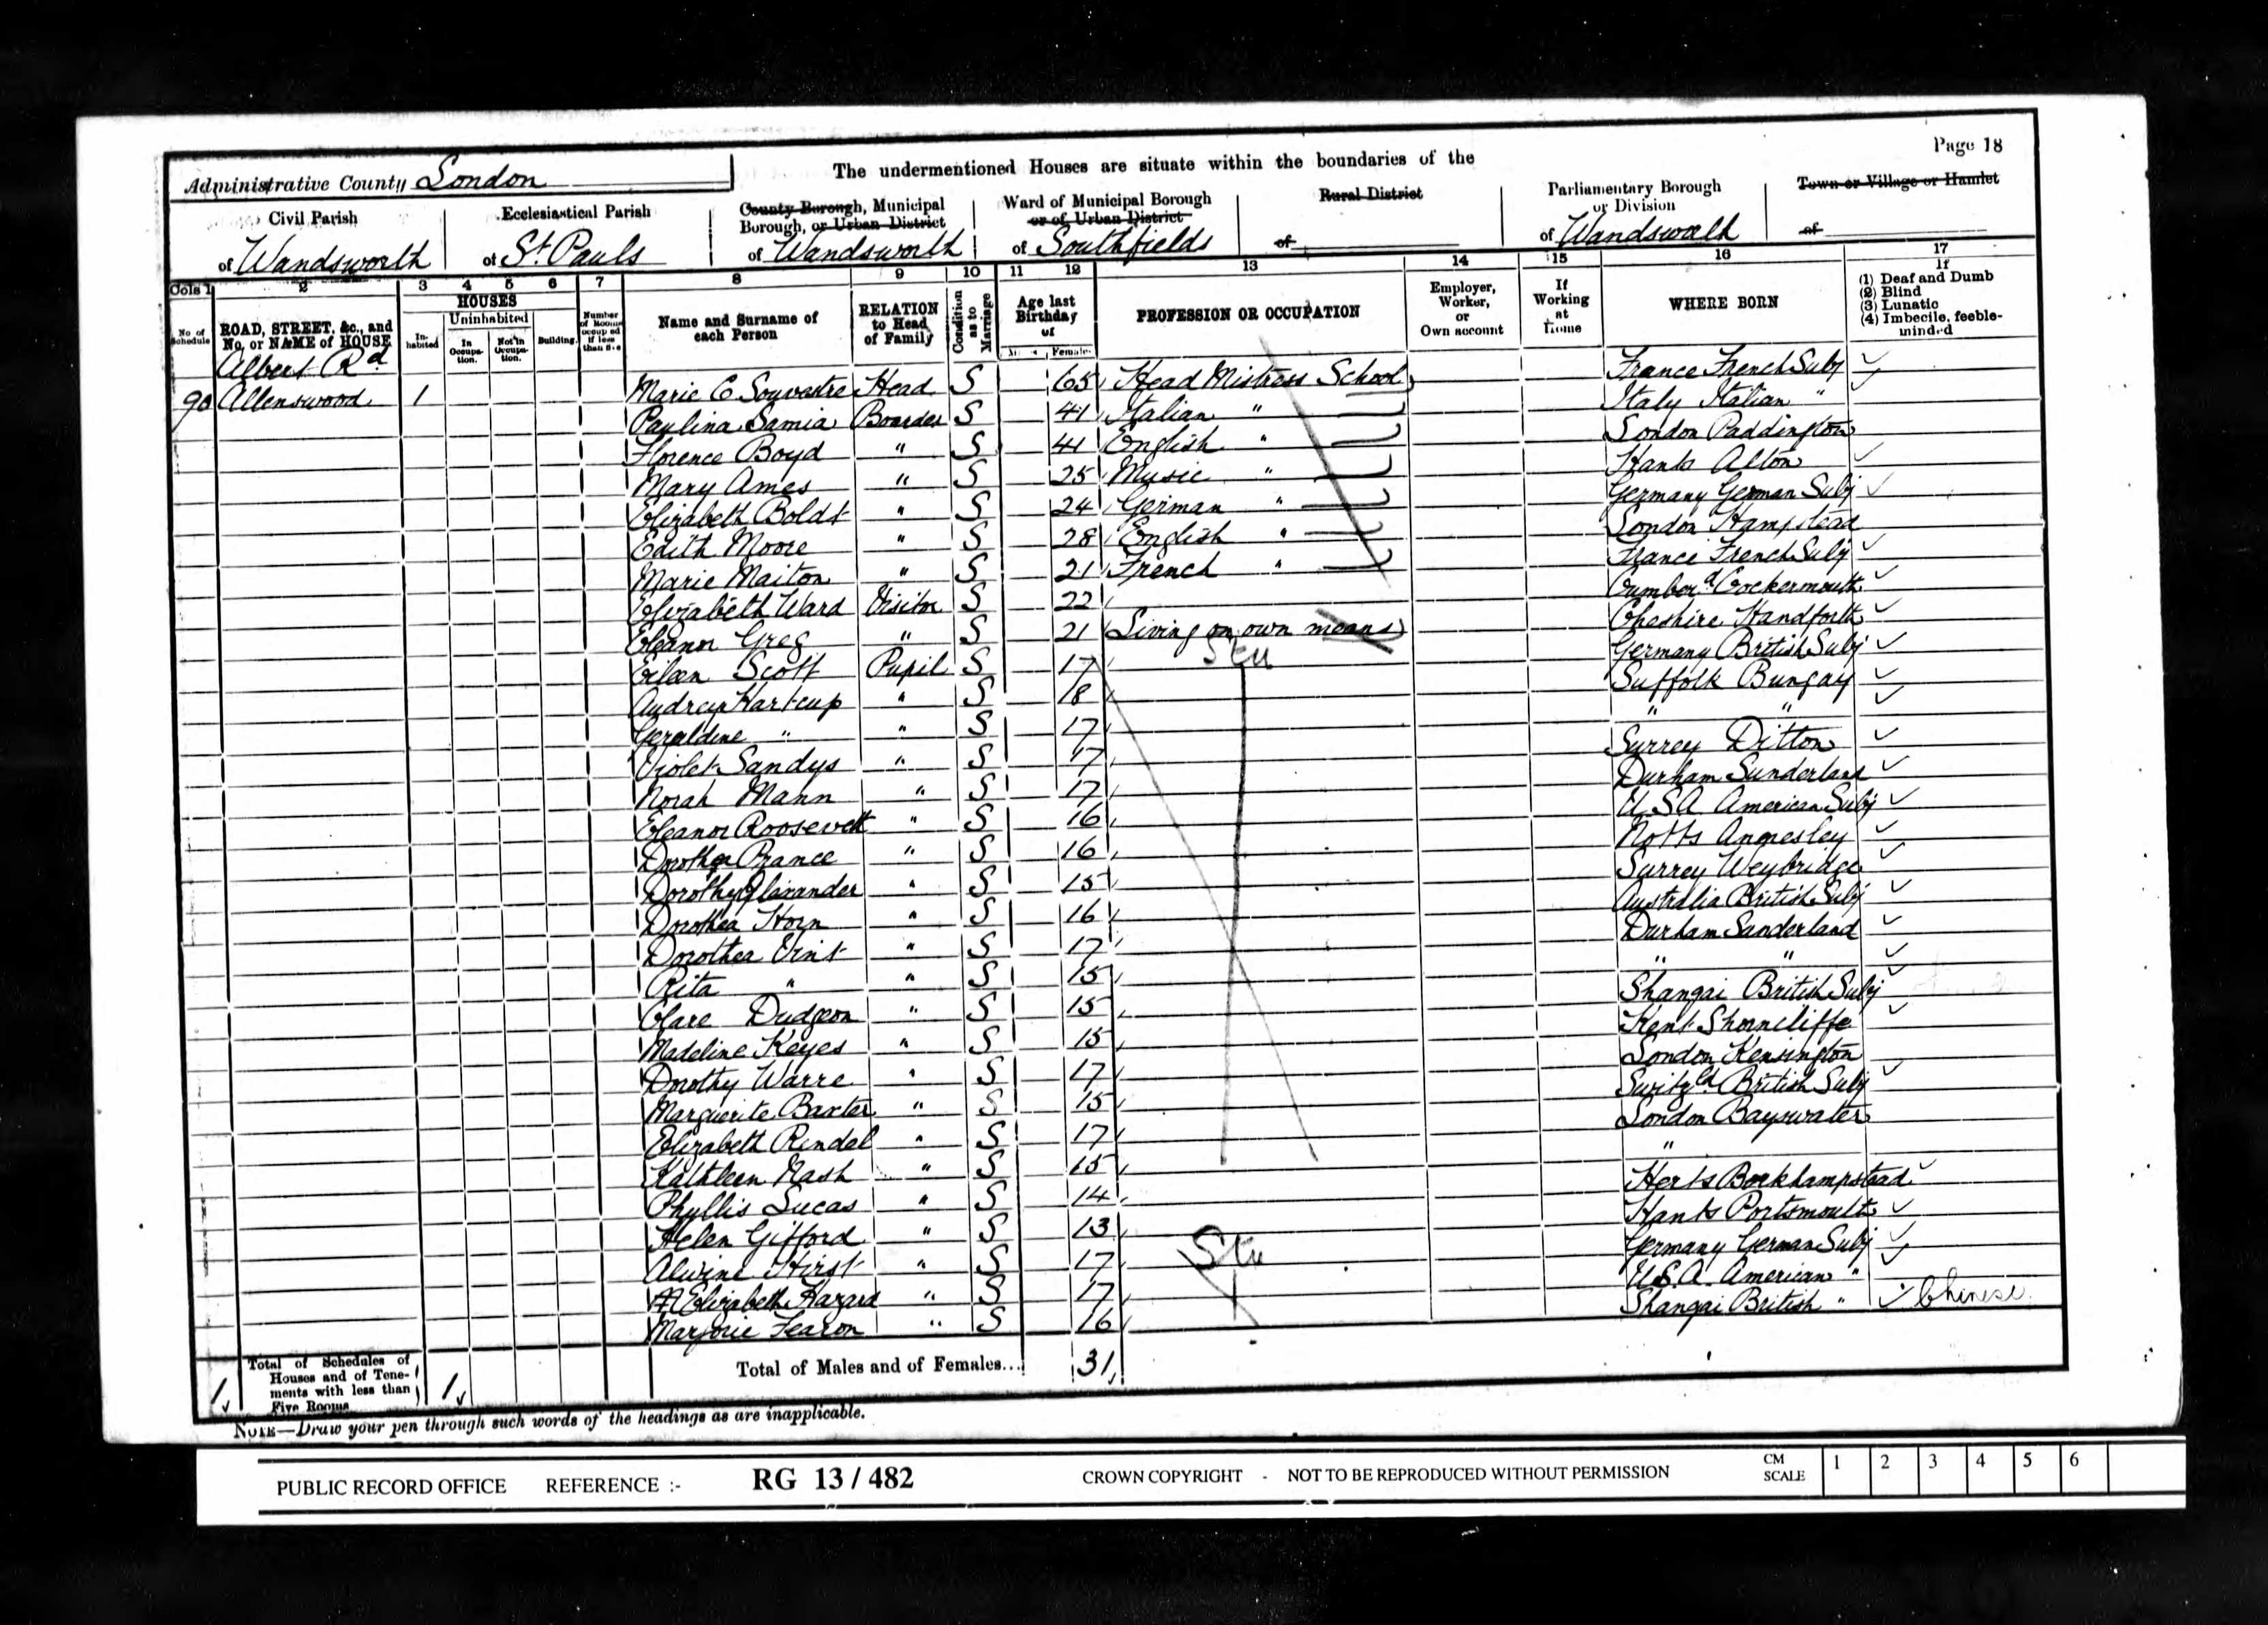 Page 18
The undermentioned Houses are situate within the boundaries of the
Administrative County London
Civil Parish of Wandsworth
Ecclesiastical Parish of St Pauls
County Borough, Municipal Borough, or Urban District of Wandsworth
Ward of Municipal Borough or of Urban District of Southfields
Rural District of
Parliamentary Borough or Division of Wandsworth
Town or Village or Hamlet of
Cols 1 2 3 4 5 6 7 8 9 10 11 12 13 14 15 16 17
No of Schedule
ROAD, STREET, &c., and No. or NAME of HOUSE
HOUSES
Inhabited
Uninhabited
In Occupation.
Not in Occupation.
Building.
Number of Rooms occupied if less than five
Name and Surname of each Person
RELATION to Head of Family
Condition as to Marriage
Age last Birthday of
Females
PROFESSION OR OCCUPATION
Employer, Worker, or Own account
If Working at Home
WHERE BORN
If (1) Deaf and Dumb (2) Blind (3) Lunatic (4) Imbecile, feeble-minded
Albert Rd
90 Allenswood 1 Marie C Souvestre Head S 65 Head Mistress School France French Subj
Paulina Samia Boarder S 41 Italian " Italy Italian "
Florence Boyd " S 41 English " London Paddington
Mary Ames " S 25 Music " Hants Alton
Elizabeth Boldt " S 24 German " Germany German Subj
Edith Moore " S 28 English " London Hampstead
Marie Maiton " S 21 French " France French Subj
Elizabeth Ward Visitor S 22 Cumberd Cockermouth
Eleanor Greg " S 21 Living on own means Cheshire Handforth
Eileen Scott Pupil S 17 Stu Germany British Subj
Audrey Hartcup " S 18 Suffolk Bungay
Geraldine " " S 17 " "
Violet Sandys " S 17 Surrey Ditton
Norah Mann " S 17 Durham Sunderland
Eleanor Roosevelt " S 16 U.S.A. American Subj
Dorothea Prance " S 16 Notts Annesley
Dorothy " S 15 Surrey Weybridge
Dorothea Horn " S 16 Australia British Subj
Dorothea Vint " S 17 Durham Sunderland
Rita " " S 15 " "
Clare Dudgeon " S 15 Shangai British Subj
Madeline Keyes " S 15 Kent Shorncliffe
Dorothy Warre " S 17 London Kensington
Marguerite Baxter " S 15 Switzld British Subj
Elizabeth Rendel " S 17 London Bayswater
Kathleen Nash " S 15 "
Phyllis Lucas " S 14 Herts Berkhampstead
Helen Gifford " S 13 Hants Portsmouth
Alwine Hirst " S 17 Stu Germany German Subj
M Elizabeth Hazard " S 17 U.S.A. American "
Marjorie Fearon " S 16 Shangai British " Chinese
1 Total of Schedules of Houses and of Tenements with less than Five Rooms 1 Total of Males and of Females... 31
NOTE—Draw your pen through such words of the headings as are inapplicable.
PUBLIC RECORD OFFICE REFERENCE :- RG 13 / 482 CROWN COPYRIGHT - NOT TO BE REPRODUCED WITHOUT PERMISSION CM SCALE 1 2 3 4 5 6